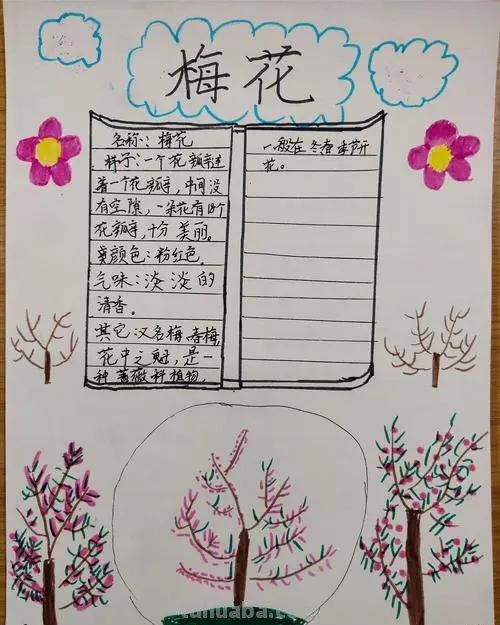 梅花
名称:梅花
样子:一个花瓣连
着一个花瓣,中间没
有空隙,一朵花有18个
花瓣,十分美丽。
颜色:粉红色,
气味:淡淡的
清香。
其它:又名梅,春梅,
花中之魁,是一
种蔷薇科植物,
一般在冬春季节开
花。